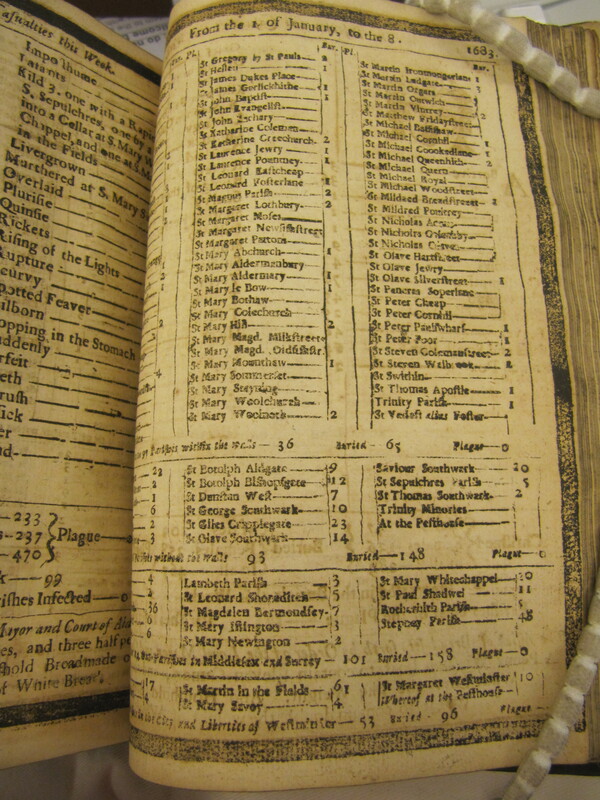 Casualties this Week.
Imposthume
Infants
Kild 3. one with a
S. Sepulchres, one by
into a Cellar at S. Mary
Chappel, and one at
in the Fields
Livergrown
Murthered at S. Mary S
Overlaid
Plurisie
Quinsie
Rickets
Rising of the Lights
Rupture
Scurvy
Spotted Feaver
Stilborn
Stopping in the Stomach
Suddenly
Surfeit
Teeth
Thrush
233
237
470
Plague
99
Parishes Infected
Mayor and Court of
es, and three half
hold Breadmade
of White Bread
From the 1. of January, to the 8. 1683.
Bur. Pl. Bur.
St Gregory by St Pauls 2
St Hellen 1
St James Dukes Place
St James Garlickhithe 1
St John Baptist 1
St John Evangelist
St John Zachary
St Katharine Coleman
St Katharine Creechurch 2
St Lawrence Jewry 1
St Laurence Pountney 1
St Leonard Eastcheap
St Leonard Fosterlane
St Magnus Parish
St Margaret Lothbury 2
St Margaret Moses
St Margaret Newfishstreet
St Margaret Pattons
St Mary Abchurch 1
St Mary Aldermanbury
St Mary Aldermary 1
St Mary le Bow 1
St Mary Bothaw
St Mary Colechurch
St Mary Hill 2
St Mary Magd. Milkstreet
St Mary Magd. Oldfishstr.
St Mary Mounthaw 1
St Mary Sommerset
St Mary Stayning
St Mary Woolchurch
St Mary Woolnoth 2
St Martin Ironmongerlane
St Martin Ludgate
St Martin Orgars
St Martin Outwich
St Martin Vintrey
St Matthew Fridaystreet
St Michael Bassishaw
St Michael Cornhil 1
St Michael Crookedlane 1
St Michael Queenhith 2
St Michael Quern
St Michael Royal
St Michael Woodstreet
St Mildred Breadstreet
St Mildred Poultrey
St Nicholas Acons
St Nicholas Coleabby
St Nicholas Olaves
St Olave Hartstreet
St Olave Jewry
St Olave Silverstreet 1
St Pancras Soperlane
St Peter Cheap
St Peter Cornhil
St Peter Paulswharf 1
St Peter Poor 1
St Steven Colemanstreet 2
St Steven Walbrook 2
St Swithin
St Thomas Apostle 1
Trinity Parish 1
St Vedast alias Foster
Parishes within the walls 36 Buried 65 Plague 0
St Botolph Aldgate 9
St Botolph Bishopsgate 12
St Dunstan West 7
St George Southwark 10
St Giles Cripplegate 23
St Olave Southwark 14
Saviour Southwark 20
St Sepulchres Parish 5
St Thomas Southwark 2
Trinity Minories
At the Pesthouse
without the walls 93 Buried 148 Plague 0
Lambeth Parish 3
St Leonard Shoreditch 5
St Magdalen Bermondsey 7
St Mary Islington 3
St Mary Newington 2
St Mary Whitechappel 20
St Paul Shadwel 11
Rotherhith Parish 5
Stepney Parish 48
Out-Parishes in Middlesex and Surrey 101 Buried 158 Plague 0
St Martin in the Fields 61
St Mary Savoy 4
St Margaret Westminster 10
Whereof at the Pesthouse
City and Liberties of Westminster 53 Buried 96 Plague